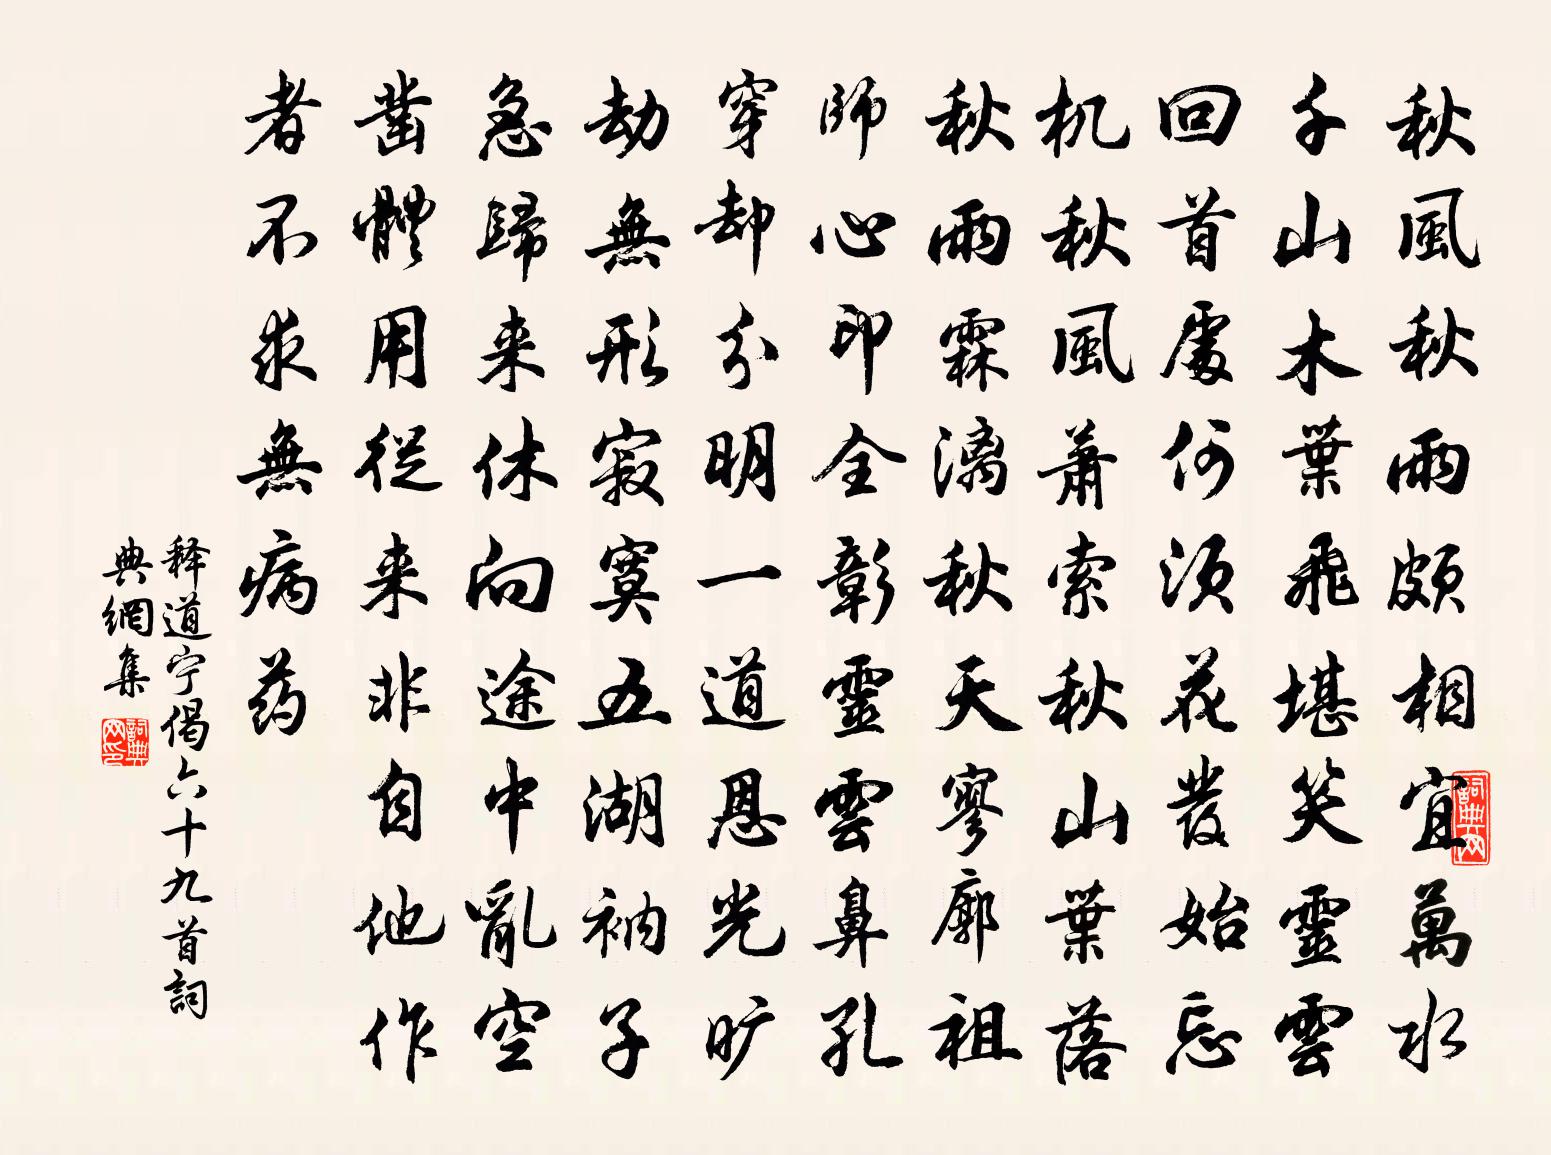 秋風秋雨頗相宜萬水
千山木葉飛堪笑靈雲
回首處何須花發始忘
机秋風蕭索秋山葉落
秋雨霖漓秋天寥廓祖
師心印全彰靈雲鼻孔
穿却分明一道恩光旷
劫無形寂寞五湖衲子
急歸来休向途中亂空
凿體用從来非自他作
者不求無病药
释道宁偈六十九首詞
典網集
詞典网
詞典网印